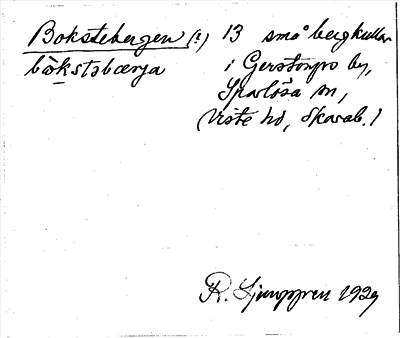 Bokstebergen (!) 13 små bergkullar
bòkstəbærja i Gerstorps by,
Sparlösa sn,
Viste hd, Skarab. l
R. Ljunggren 1929